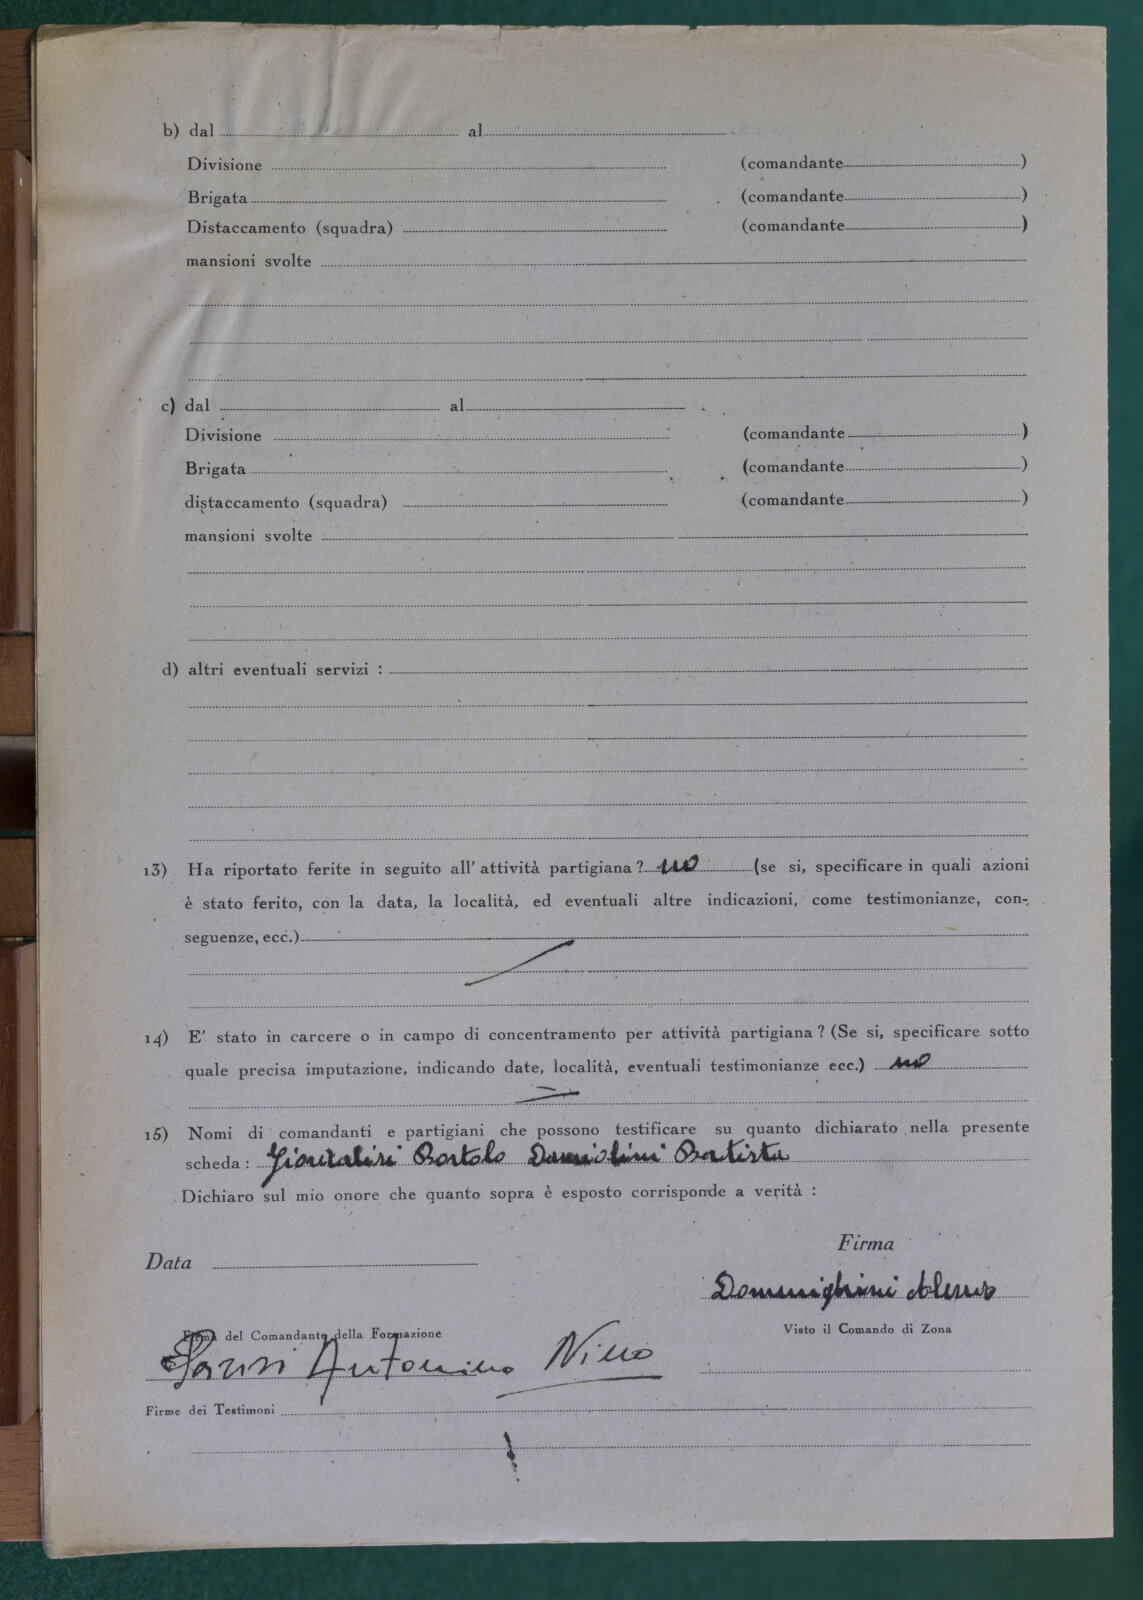 b) dal al
Divisione (comandante )
Brigata (comandante )
Distaccamento (squadra) (comandante )
mansioni svolte
c) dal al
Divisione (comandante )
Brigata (comandante )
distaccamento (squadra) (comandante )
mansioni svolte
d) altri eventuali servizi :
13) Ha riportato ferite in seguito all' attività partigiana ? no (se si, specificare in quali azioni
è stato ferito, con la data, la località, ed eventuali altre indicazioni, come testimonianze, con-
seguenze, ecc.)
14) E' stato in carcere o in campo di concentramento per attività partigiana ? (Se si, specificare sotto
quale precisa imputazione, indicando date, località, eventuali testimonianze ecc.) no
15) Nomi di comandanti e partigiani che possono testificare su quanto dichiarato nella presente
scheda : Bortolo Damiolini Batista
Dichiaro sul mio onore che quanto sopra è esposto corrisponde a verità :
Firma
Data
Domenighini
Firma del Comandante della Formazione Visto il Comando di Zona
Antonino Nino
Firme dei Testimoni